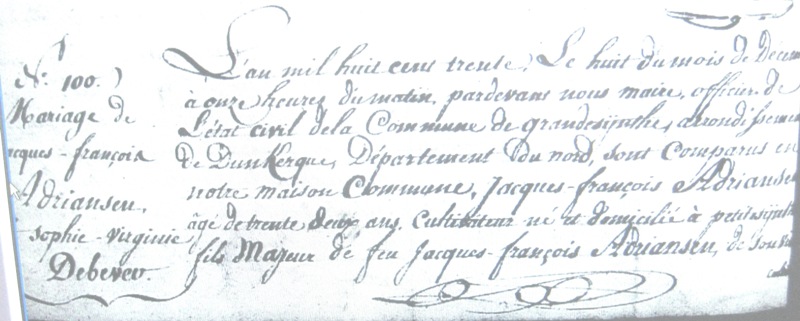 N.º 100.
Mariage de
acques-françois
Adriansen,
sophie-virginie
Debever.
L'an mil huit cent trente, Le huit du mois de Décem
à onze heures du matin, pardevant nous maire, officier de
L'état civil de la Commune de grandesynthe, arrondissemen
de Dunkerque, Département du nord, sont Comparus en
notre maison Commune, Jacques-françois Adriansen
âgé de trente deux ans, Cultivateur né et domicilié à petitesynth
fils Majeur de feu Jacques-françois Adriansen, de son